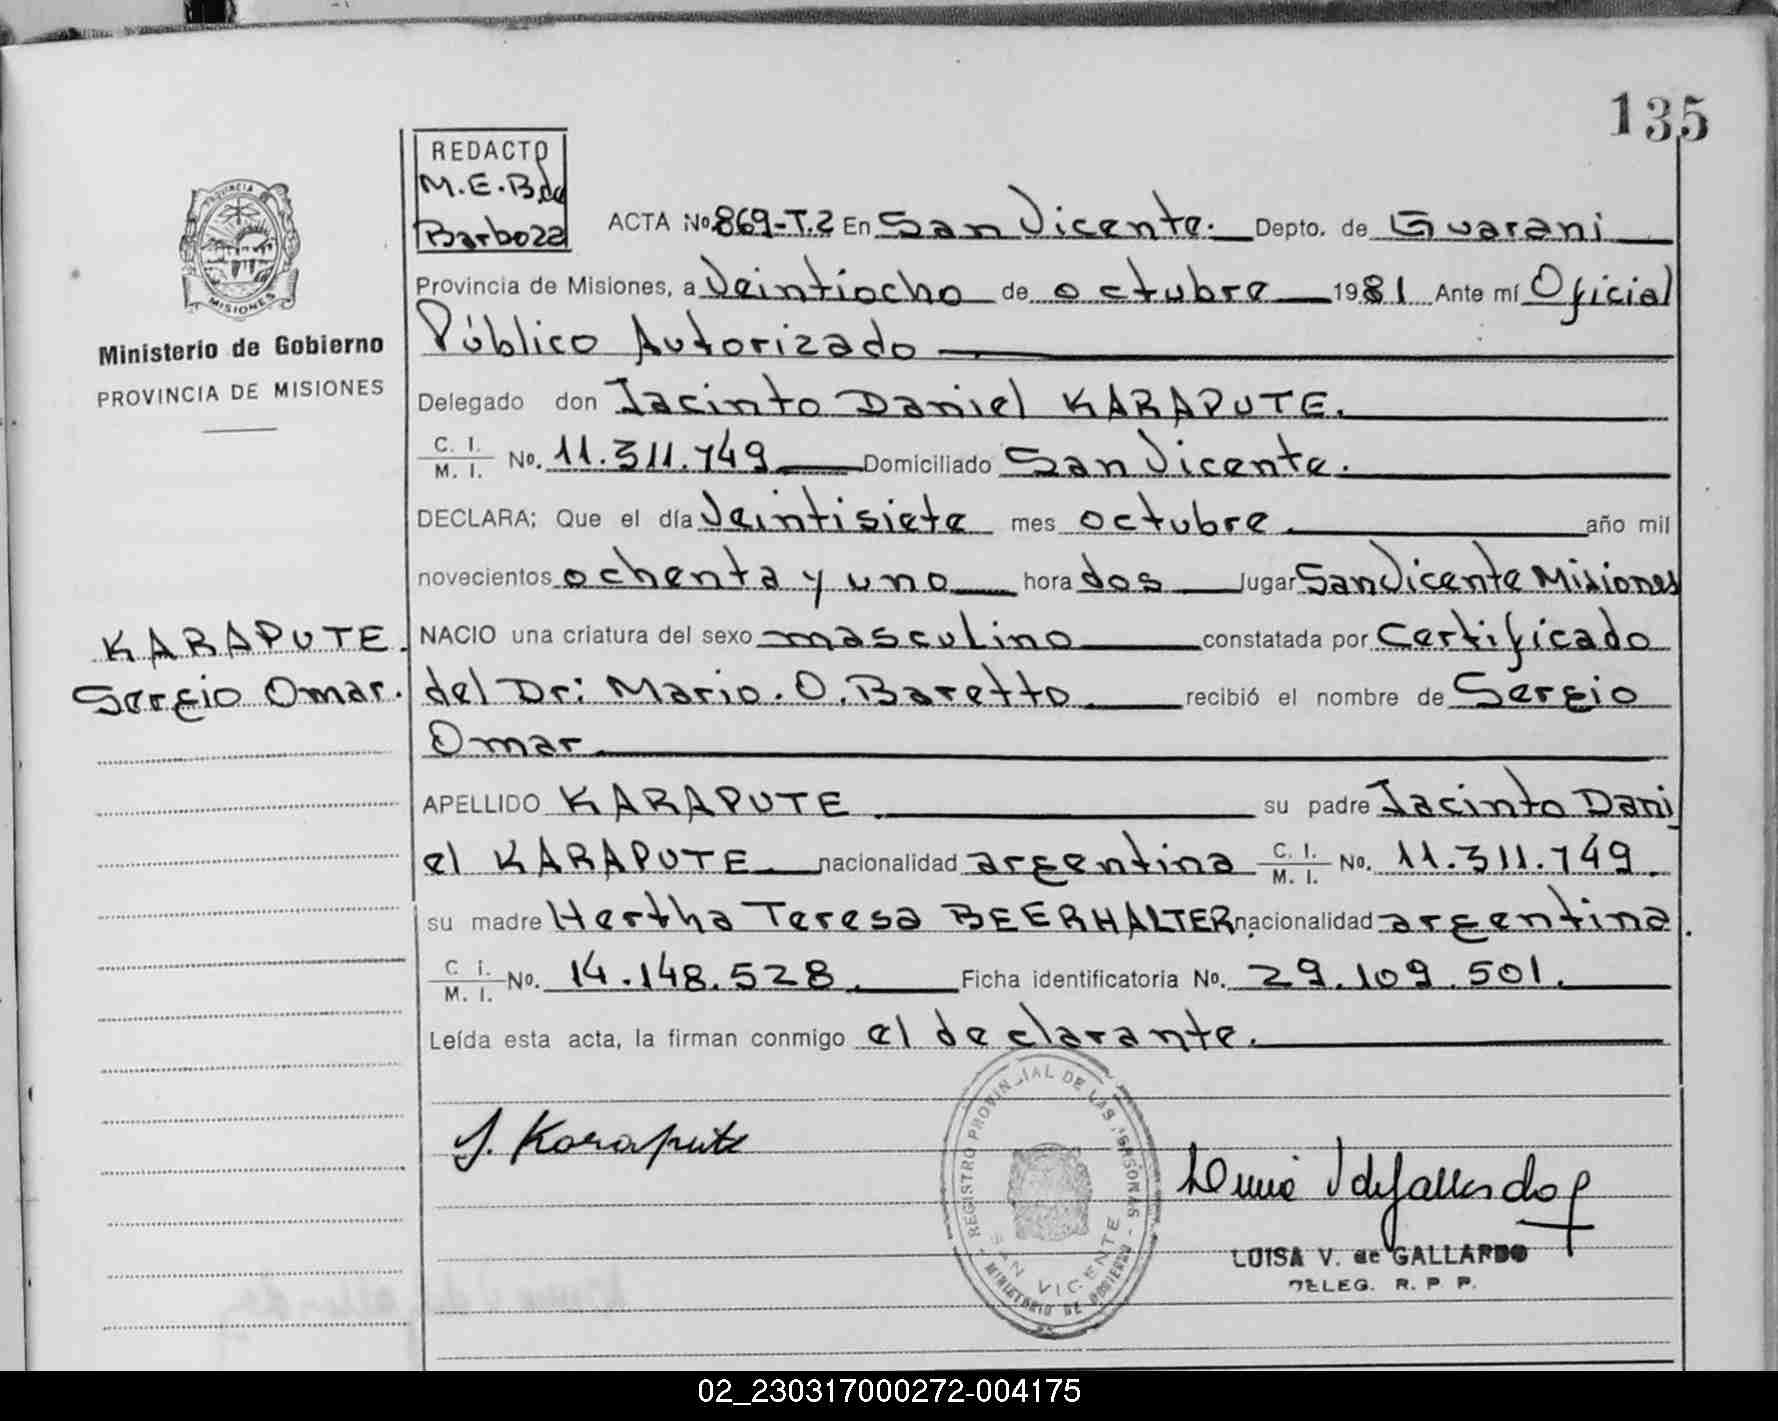 135
REDACTO
M.E.B de
Barboza
PROVINCIA
MISIONES
Ministerio de Gobierno
PROVINCIA DE MISIONES
ACTA No. 869-T.2 En San Vicente. Depto. de Guarani
Provincia de Misiones, a Veintiocho de octubre 1981 Ante mí Oficial
Público Autorizado
Delegado don Jacinto Daniel KARAPUTE.
C. I. / M. I. No. 11.311.749 Domiciliado San Vicente.
DECLARA: Que el día Veintisiete mes octubre año mil
novecientos ochenta y uno hora dos lugar San Vicente Misiones
NACIO una criatura del sexo masculino constatada por Certificado
del Dr: Mario. O. Baretto recibió el nombre de Sergio
Omar
KARAPUTE.
Sergio Omar.
APELLIDO KARAPUTE su padre Jacinto Dani
el KARAPUTE nacionalidad argentina C. I. / M. I. No. 11.311.749.
su madre Hertha Teresa BEERHALTER nacionalidad argentina.
C. I. / M. I. No. 14.148.528. Ficha identificatoria No. 29.109.501.
Leída esta acta, la firman conmigo el declarante.
J. Karapute
REGISTRO PROVINCIAL DE LAS PERSONAS
SAN VICENTE
MINISTERIO DE GOBIERNO
LUISA V. de GALLARDO
DELEG. R. P. P.
02_230317000272-004175